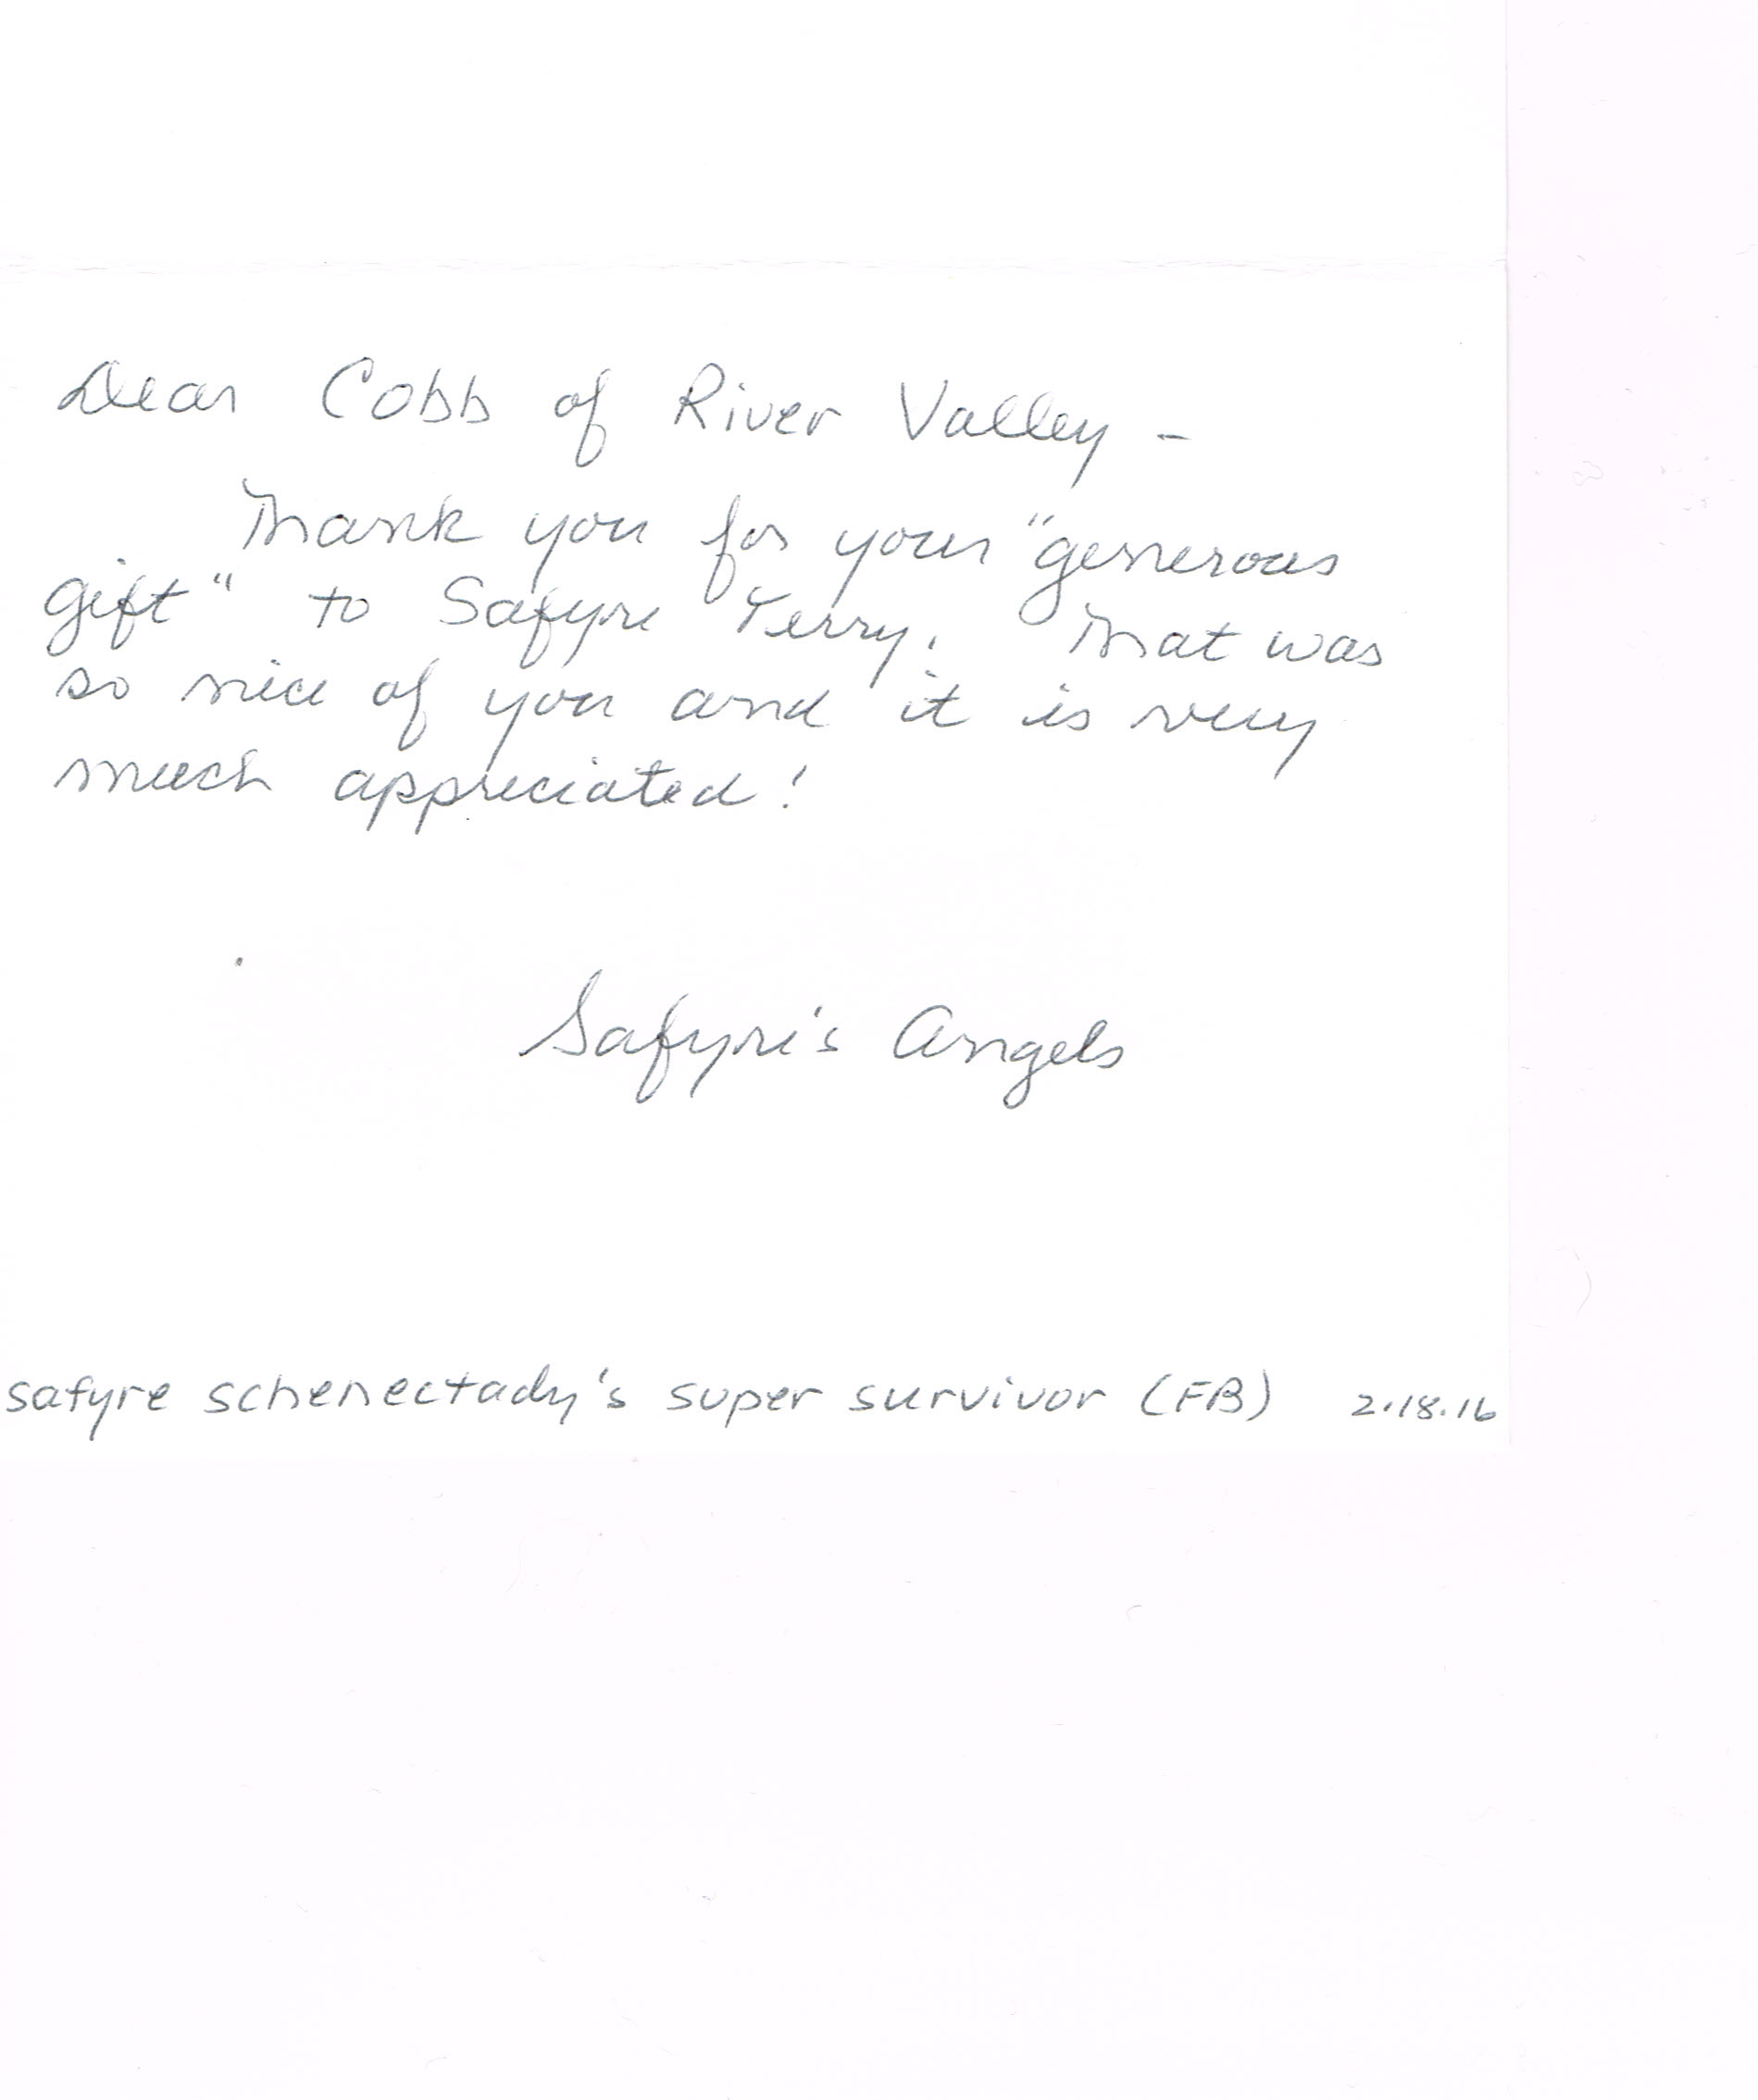 Dear Cobb of River Valley -
Thank you for your "generous
gift" to Safyre Terry. That was
so nice of you and it is very
much appreciated!
Safyre's Angels
safyre schenectady's super survivor (FB) 2.18.16